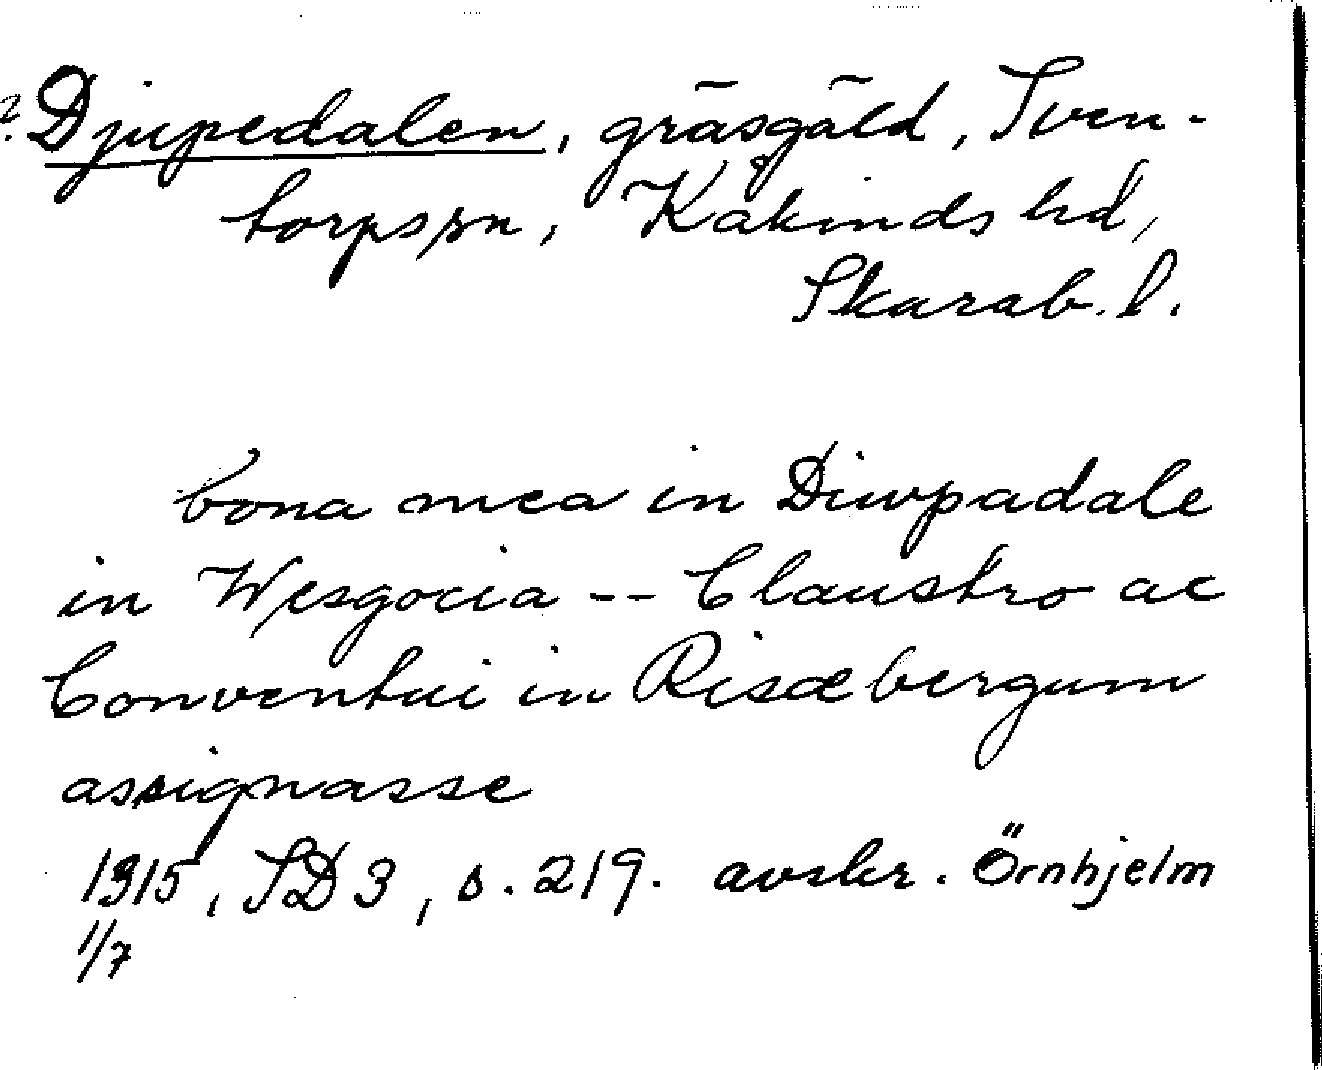 ? Djupedalen, gräsgäld, Sven-
torps sn, Kåkinds hd,
Skarab. l.
bona mea in Diwpadale
in Wesgocia -- Claustro ac
Conventui in Risæbergum
assignasse
1315, SD 3, s. 219. avskr. Örnhjelm
1/7